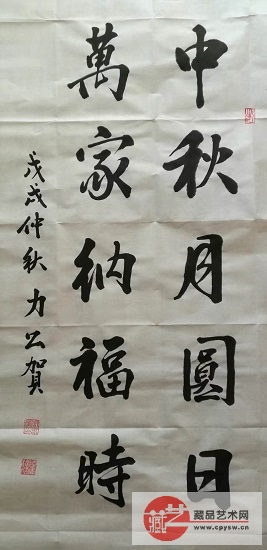 中秋月圓日
萬家納福時
戊戌仲秋 力公賀
藏艺
藏品艺术网
www.cpysw.cn